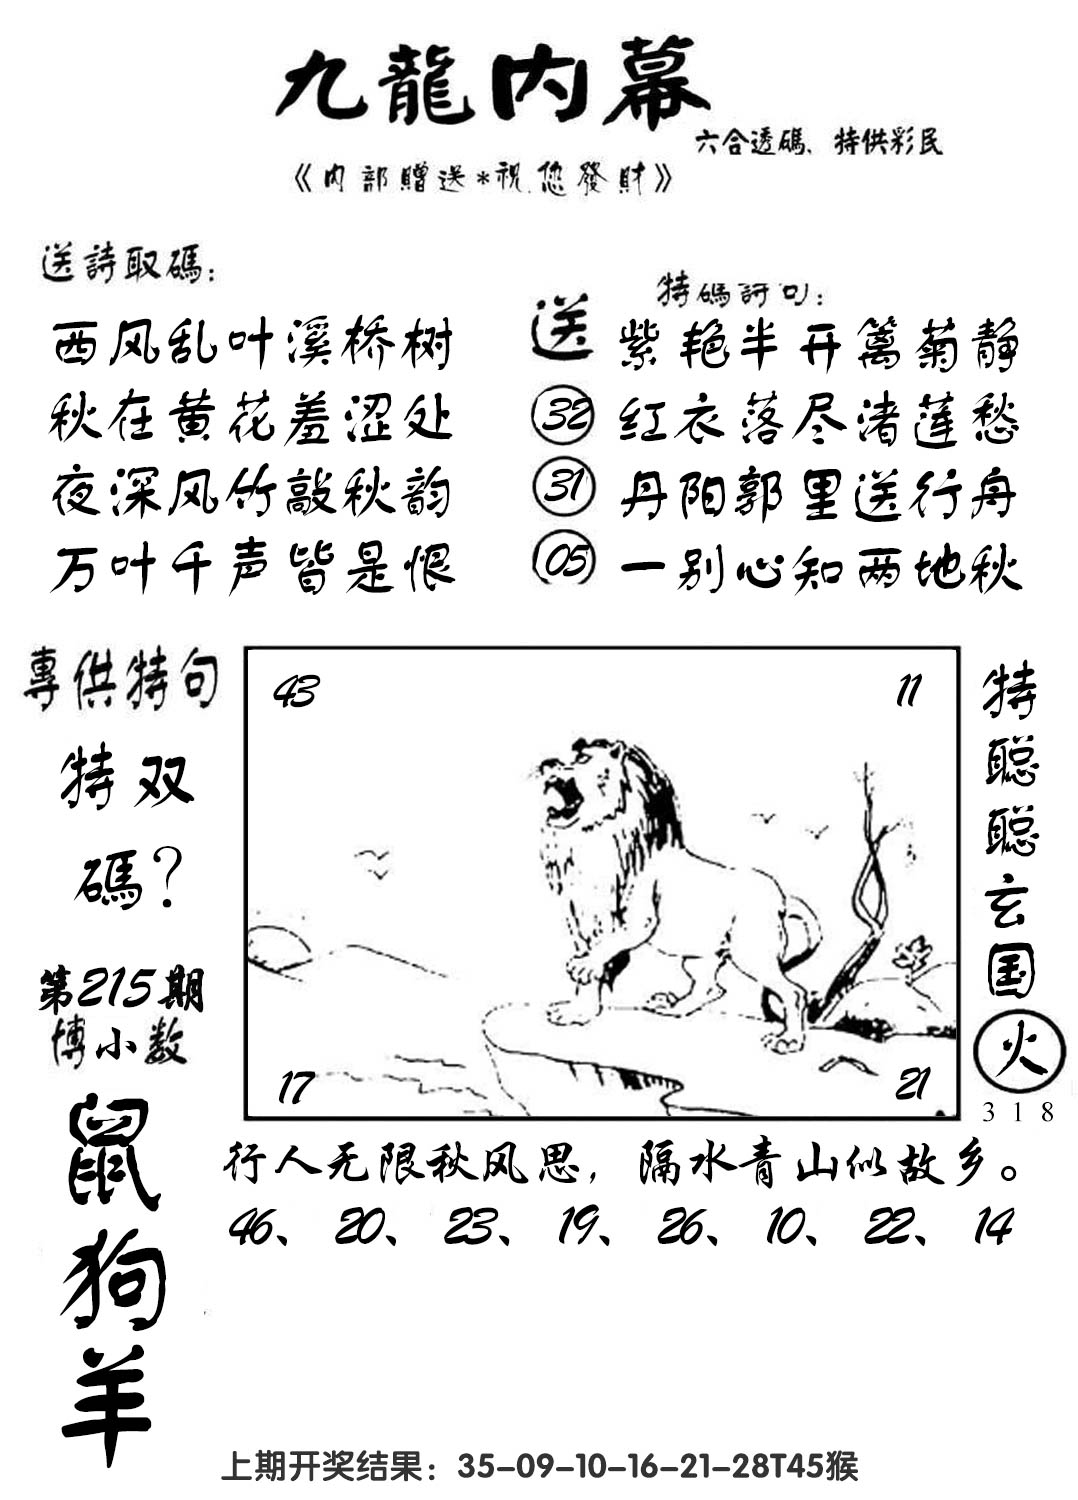 九龍内幕
六合透碼、特供彩民
《内部贈送*祝您發財》
送詩取碼：
西风乱叶溪桥树
秋在黄花羞涩处
夜深风竹敲秋韵
万叶千声皆是恨
送
32
31
05
特碼詩句：
紫艳半开篱菊静
红衣落尽渚莲愁
丹阳郭里送行舟
一别心知两地秋
專供特句
特双
碼？
第215期
博小数
鼠
狗
羊
43
11
17
21
特
聪
聪
玄
国
火
318
行人无限秋风思，隔水青山似故乡。
46、20、23、19、26、10、22、14
上期开奖结果：35-09-10-16-21-28T45猴